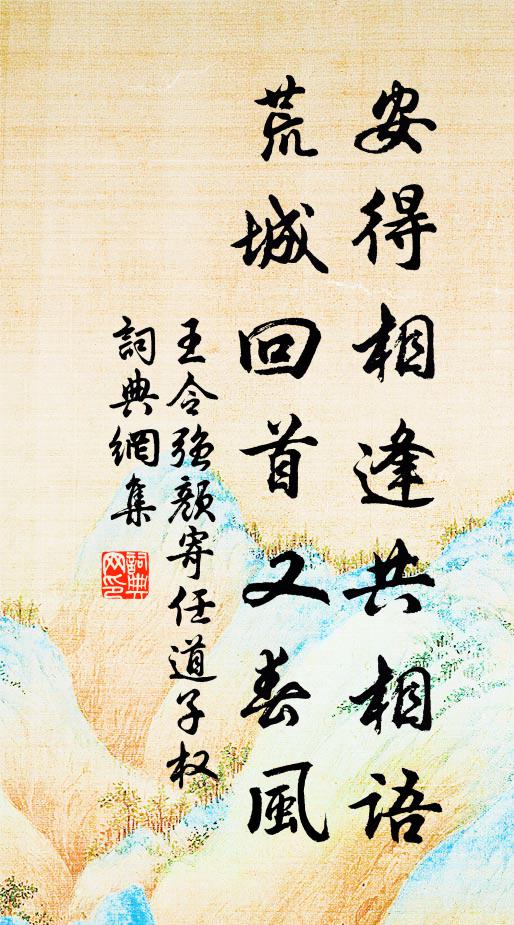 安得相逢共相語
荒城回首又春風
王令強顏寄任道子权
詞典網集
詞典网印